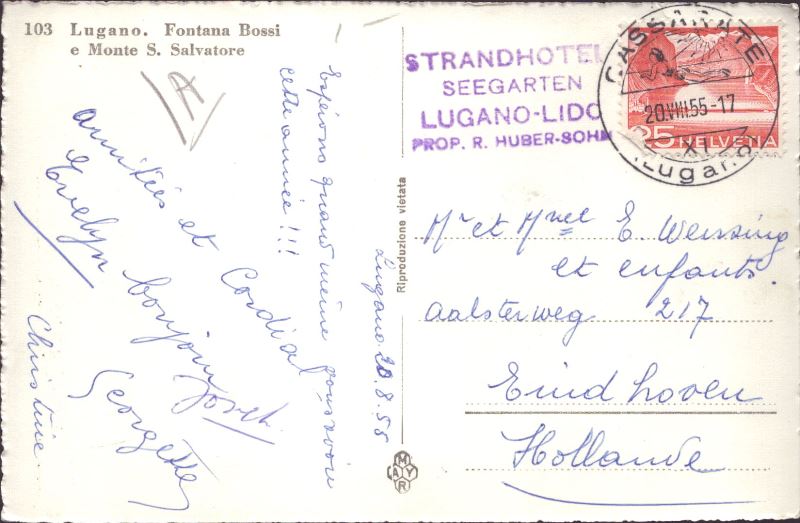 103 Lugano. Fontana Bossi
e Monte S. Salvatore
STRANDHOTEL
SEEGARTEN
LUGANO-LIDO
PROP. R. HUBER-SOHM
CASSARATE
20.VIII.55-17
(Lugano)
25 HELVETIA
Lugano 20.8.55
Espérons quand même vous voir
cette année!!!
amitiés et Cordial
bonjour
Evelyn
Joset
Georgette
Christine
Riproduzione vietata
Mr et Mme E. Wenzing
et enfants.
Aalsterweg 217
Eindhoven
Hollande
MAYR